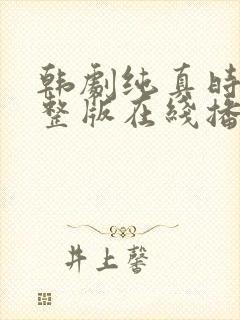 韩剧纯真时
整版在线播
井上馨